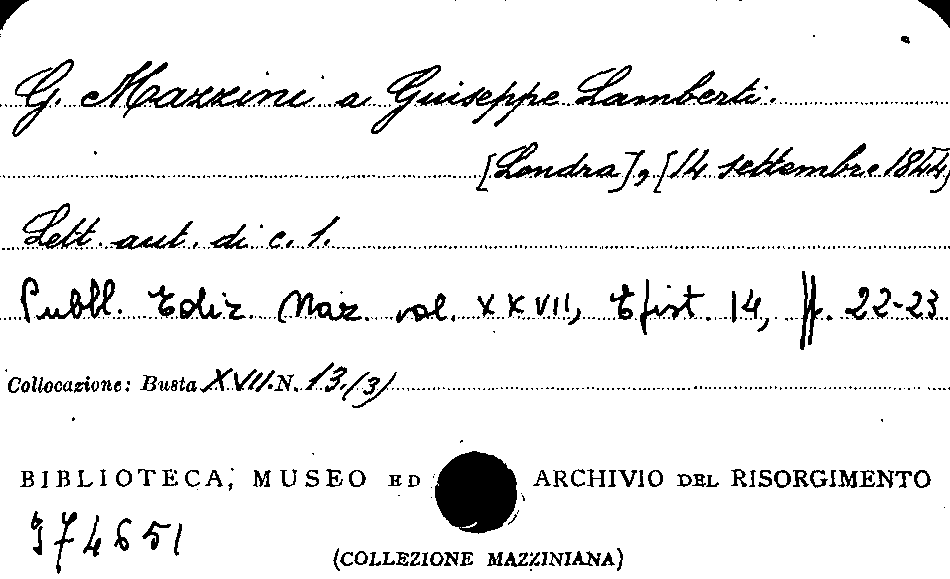 G. Mazzini a Guiseppe Lamberti.
[Londra], [14 settembre 1844]
Lett. aut. di c. 1.
Pubbl. Ediz. Naz. vol. XXVII, Epist. 14, pp. 22-23.
Collocazione: Busta XVII. N. 13.(3)
BIBLIOTECA, MUSEO ED ARCHIVIO DEL RISORGIMENTO
974651
(COLLEZIONE MAZZINIANA)